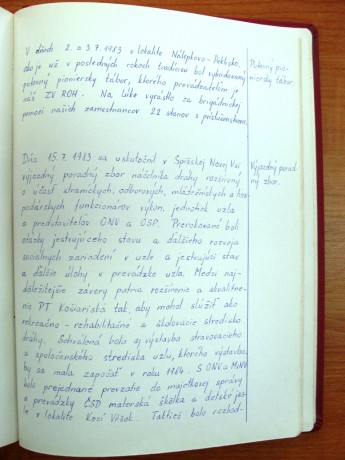 V dňoch 2. a 3.7.1983 v lokalite Nálepkovo-Peklisko,
ako je už v posledných rokoch tradíciou bol vybudovaný
putovný pioniersky tábor, ktorého prevádzateľom je
náš ZV ROH. Na lúke vyrástlo za brigádnickej
pomoci našich zamestnancov 22 stanov s príslušenstvom.
Putovný pio-
niersky tábor.
Dňa 15.7.1983 sa uskutočnil v Spišskej Novej Vsi
výjazdný poradný zbor náčelníka dráhy rozšírený
o účasť straníckych, odborových, mládežníckych a hos-
podárskych funkcionárov výkon. jednotiek uzla
a predstaviteľov ONV a OSP. Prerokované boli
otázky jestvujúceho stavu a ďalšieho rozvoja
sociálnych zariadení v uzle a jestvujúci stav
a ďalšie úlohy v prevádzke uzla. Medzi naj-
dôležitejšie závery patria rozšírenie a skvalitne-
nie PT Košiarska tak, aby mohol slúžiť ako
rekreačno-rehabilitačné a školiace stredisko
dráhy. Schválená bola aj výstavba stravovacieho
a spoločenského strediska uzlu, ktorého výstavba
by sa mala započať v roku 1984. S ONV a MsNV
bolo prejednané prevzatie do majetkovej správy
a prevádzky ČSD materská škôlka a detské jas-
le v lokalite Kozí Vŕšok. Taktiež bolo rozhod-
Výjazdný porad-
ný zbor.